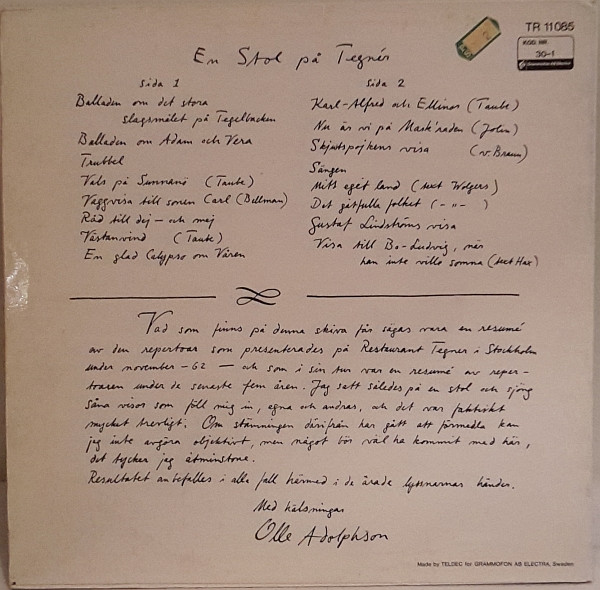 TR 11085
KOD NR
30-1
En Stol på Tegnér
Sida 1
Balladen om det stora
slagsmålet på Tegelbacken
Balladen om Adam och Vera
Trubbel
Vals på Sunnanö (Taube)
Vaggvisa till sonen Carl (Bellman)
Råd till dej – och mej
Västanvind (Taube)
En glad Calypso om Våren
Sida 2
Karl-Alfred och Ellinor (Taube)
Nu är vi på Mask'raden (Jolin)
Skjutspojkens visa (v. Braun)
Sången
Mitt eget land (text Wolgers)
Det gåtfulla folket ( - " - )
Gustaf Lindströms visa
Visa till Bo-Ludvig, när
han inte ville somna (text Hax)
Vad som finns på denna skiva får sägas vara en resumé
av den repertoar som presenterades på Restaurant Tegnér i Stockholm
under november -62 – och som i sin tur var en resumé av reper-
toaren under de senaste fem åren. Jag satt således på en stol och sjöng
såna visor som föll mig in, egna och andras, och det var faktiskt
mycket trevligt. Om stämningen därifrån har gått att förmedla kan
jag inte avgöra objektivt, men något bör väl ha kommit med här,
det tycker jag åtminstone.
Resultatet anbefalles i alla fall härmed i de ärade lyssnarnas händer.
Med hälsningar
Olle Adolphson
Made by TELDEC for GRAMMOFON AB ELECTRA, Sweden